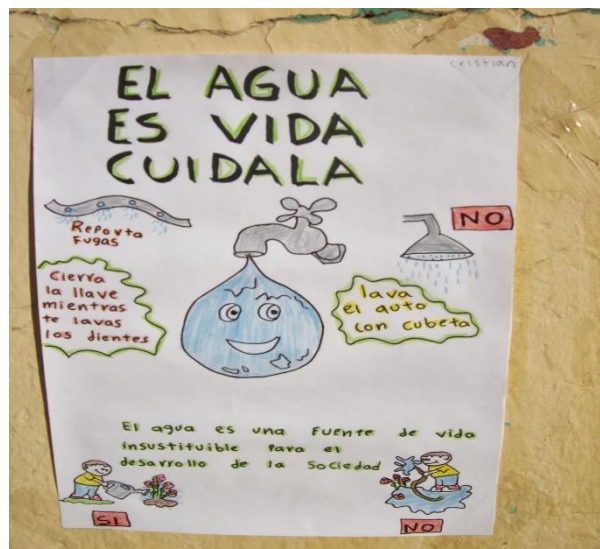 cristian
EL AGUA
ES VIDA
CUIDALA
NO
Reporta
Fugas
Cierra
la llave
mientras
te lavas
los dientes
lava
el auto
con cubeta
El agua es una Fuente de vida
insustituible Para el
desarrollo de la Sociedad
SI
NO